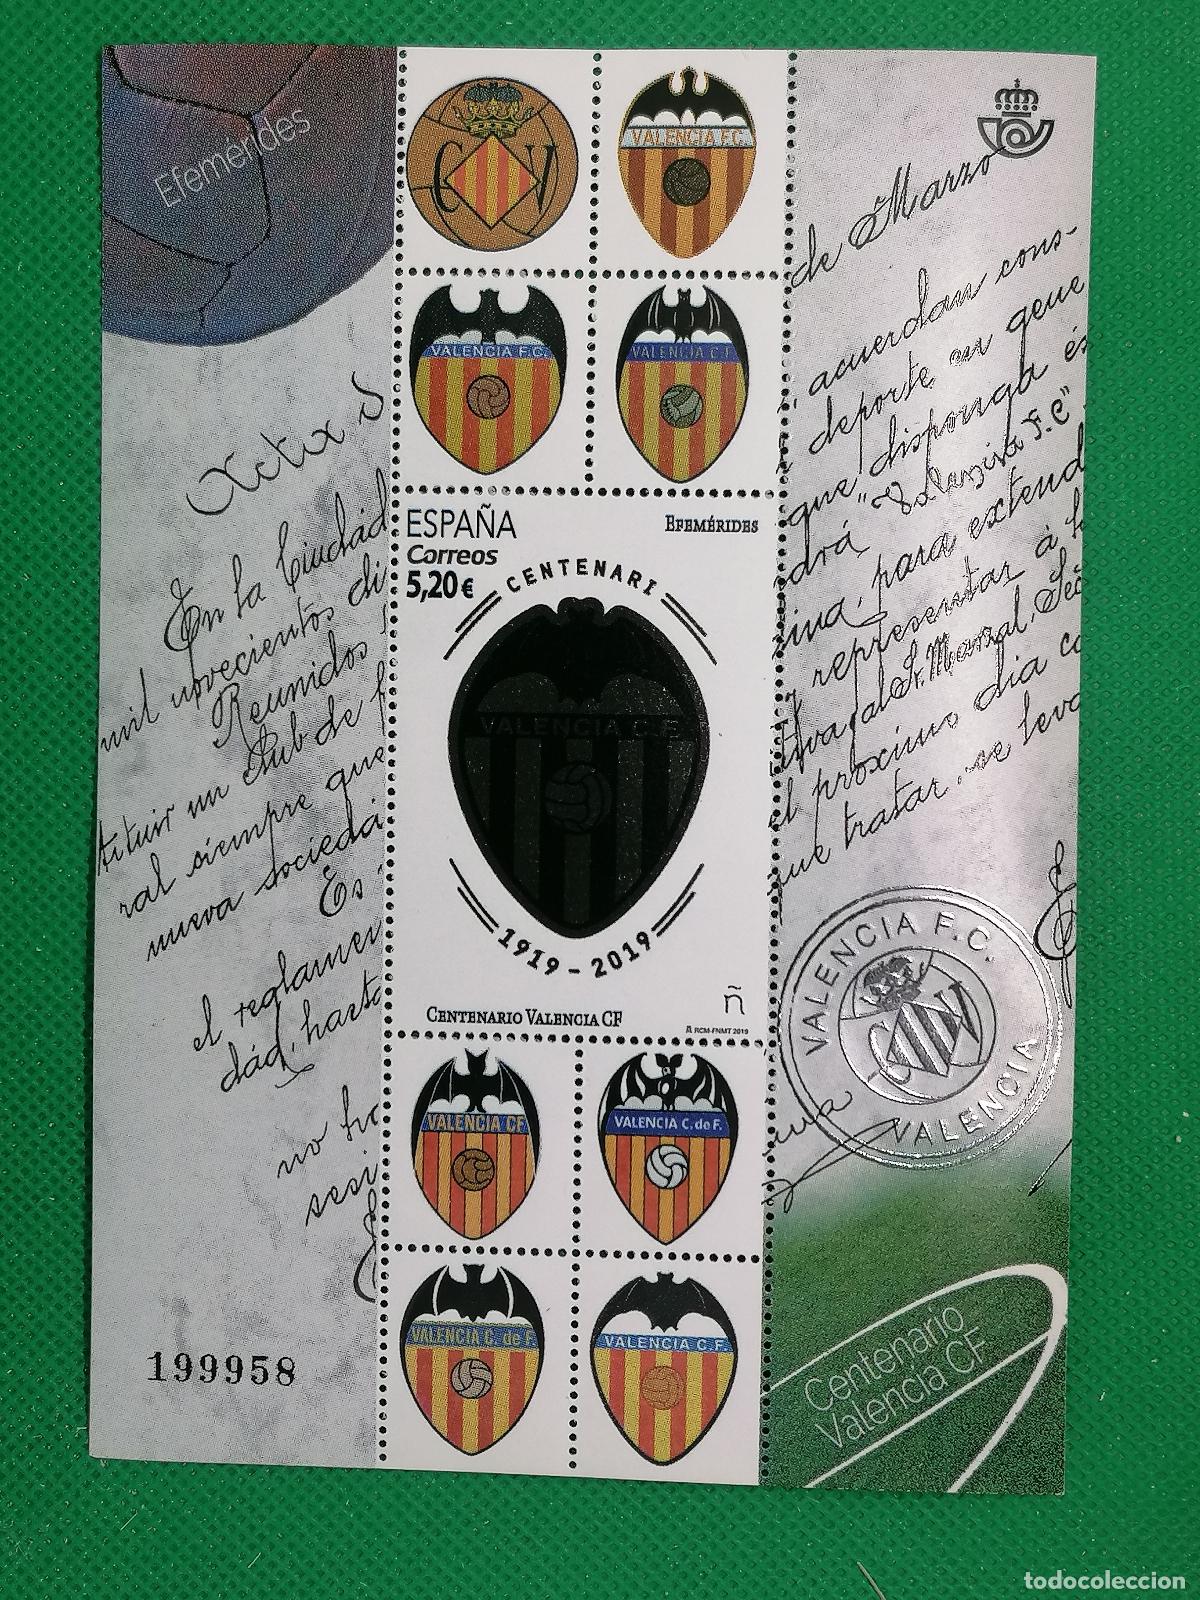 Efemérides
C V
VALENCIA F.C.
VALENCIA F.C.
VALENCIA C.F.
de Marzo
acuerdan cons-
deporte en gene
que disponga és
drá "Valencia F.C"
para extend
representar á l
al Sr. Marzal, Sec
el próximo dia
que tratar. se leva
En la Ciudad
mil novecientos di
Reunidos
tituir un Club de f
ral siempre que
nueva sociedá
Es
el reglamen
dád, hasta
no
ESPAÑA
Correos
5,20 €
EFEMÉRIDES
CENTENARI
VALENCIA C.F.
1919 - 2019
CENTENARIO VALENCIA CF
ñ
RCM-FNMT 2019
VALENCIA F.C.
VALENCIA
VALENCIA CF
VALENCIA C. de F.
VALENCIA C. de F.
VALENCIA C.F.
199958
Centenario
Valencia CF
todocoleccion